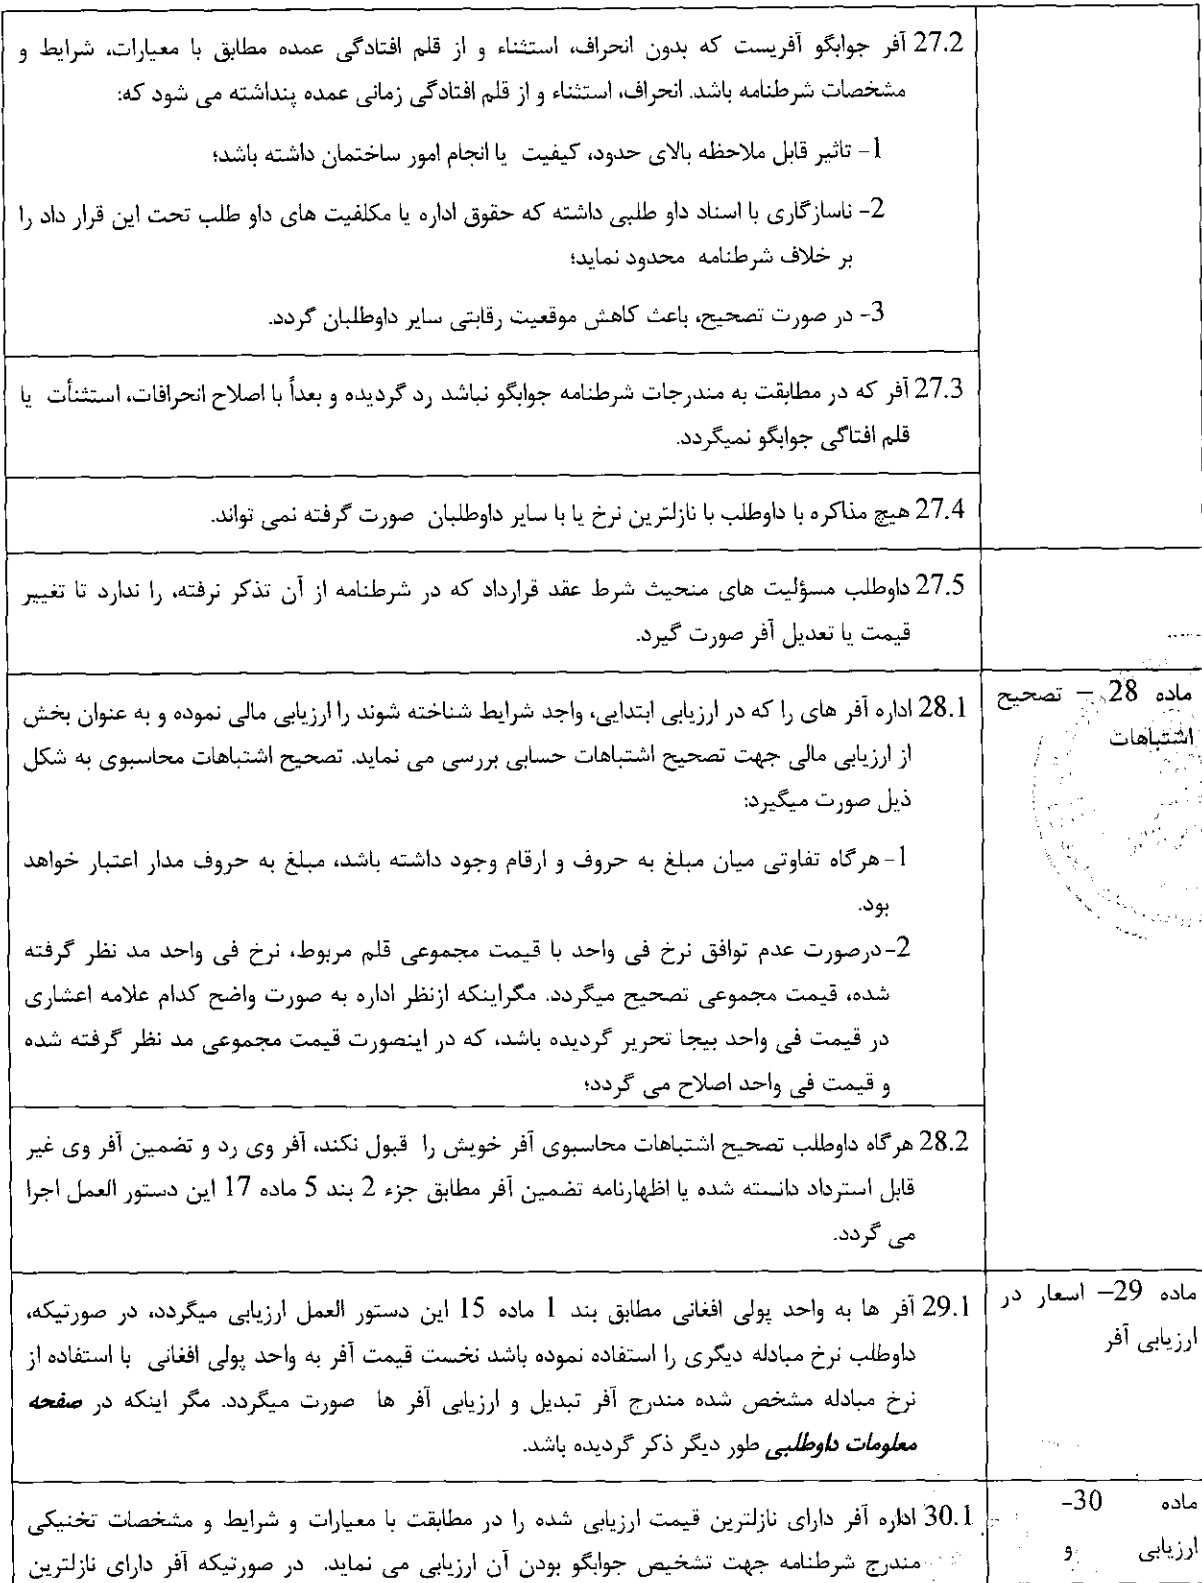 27.2 آفر جوابگو آفریست که بدون انحراف، استثناء و از قلم افتادگی عمده مطابق با معیارات، شرایط و
مشخصات شرطنامه باشد. انحراف، استثناء و از قلم افتادگی زمانی عمده پنداشته می شود که:
1- تاثیر قابل ملاحظه بالای حدود، کیفیت یا انجام امور ساختمان داشته باشد؛
2- ناسازگاری با اسناد داو طلبی داشته که حقوق اداره یا مکلفیت های داو طلب تحت این قرار داد را
بر خلاف شرطنامه محدود نماید؛
3- در صورت تصحیح، باعث کاهش موقعیت رقابتی سایر داوطلبان گردد.
27.3 آفر که در مطابقت به مندرجات شرطنامه جوابگو نباشد رد گردیده و بعداً با اصلاح انحرافات، استثنأت یا
قلم افتاگی جوابگو نمیگردد.
27.4 هیچ مذاکره با داوطلب با نازلترین نرخ یا با سایر داوطلبان صورت گرفته نمی تواند.
27.5 داوطلب مسؤلیت های منحیث شرط عقد قرارداد که در شرطنامه از آن تذکر نرفته، را ندارد تا تغییر
قیمت یا تعدیل آفر صورت گیرد.
ماده 28 – تصحیح
اشتباهات
28.1 اداره آفر های را که در ارزیابی ابتدایی، واجد شرایط شناخته شوند را ارزیابی مالی نموده و به عنوان بخش
از ارزیابی مالی جهت تصحیح اشتباهات حسابی بررسی می نماید. تصحیح اشتباهات محاسبوی به شکل
ذیل صورت میگیرد:
1- هرگاه تفاوتی میان مبلغ به حروف و ارقام وجود داشته باشد، مبلغ به حروف مدار اعتبار خواهد
بود.
2- درصورت عدم توافق نرخ فی واحد با قیمت مجموعی قلم مربوط، نرخ فی واحد مد نظر گرفته
شده، قیمت مجموعی تصحیح میگردد. مگراینکه ازنظر اداره به صورت واضح کدام علامه اعشاری
در قیمت فی واحد بیجا تحریر گردیده باشد، که در اینصورت قیمت مجموعی مد نظر گرفته شده
و قیمت فی واحد اصلاح می گردد؛
28.2 هرگاه داوطلب تصحیح اشتباهات محاسبوی آفر خویش را قبول نکند، آفر وی رد و تضمین آفر وی غیر
قابل استرداد دانسته شده یا اظهارنامه تضمین آفر مطابق جزء 2 بند 5 ماده 17 این دستور العمل اجرا
می گردد.
ماده 29– اسعار در
ارزیابی آفر
29.1 آفر ها به واحد پولی افغانی مطابق بند 1 ماده 15 این دستور العمل ارزیابی میگردد، در صورتیکه،
داوطلب نرخ مبادله دیگری را استفاده نموده باشد نخست قیمت آفر به واحد پولی افغانی با استفاده از
نرخ مبادله مشخص شده مندرج آفر تبدیل و ارزیابی آفر ها صورت میگردد. مگر اینکه در صفحه
معلومات داوطلبی طور دیگر ذکر گردیده باشد.
ماده 30-
ارزیابی و
30.1 اداره آفر دارای نازلترین قیمت ارزیابی شده را در مطابقت با معیارات و شرایط و مشخصات تخنیکی
مندرج شرطنامه جهت تشخیص جوابگو بودن آن ارزیابی می نماید. در صورتیکه آفر دارای نازلترین